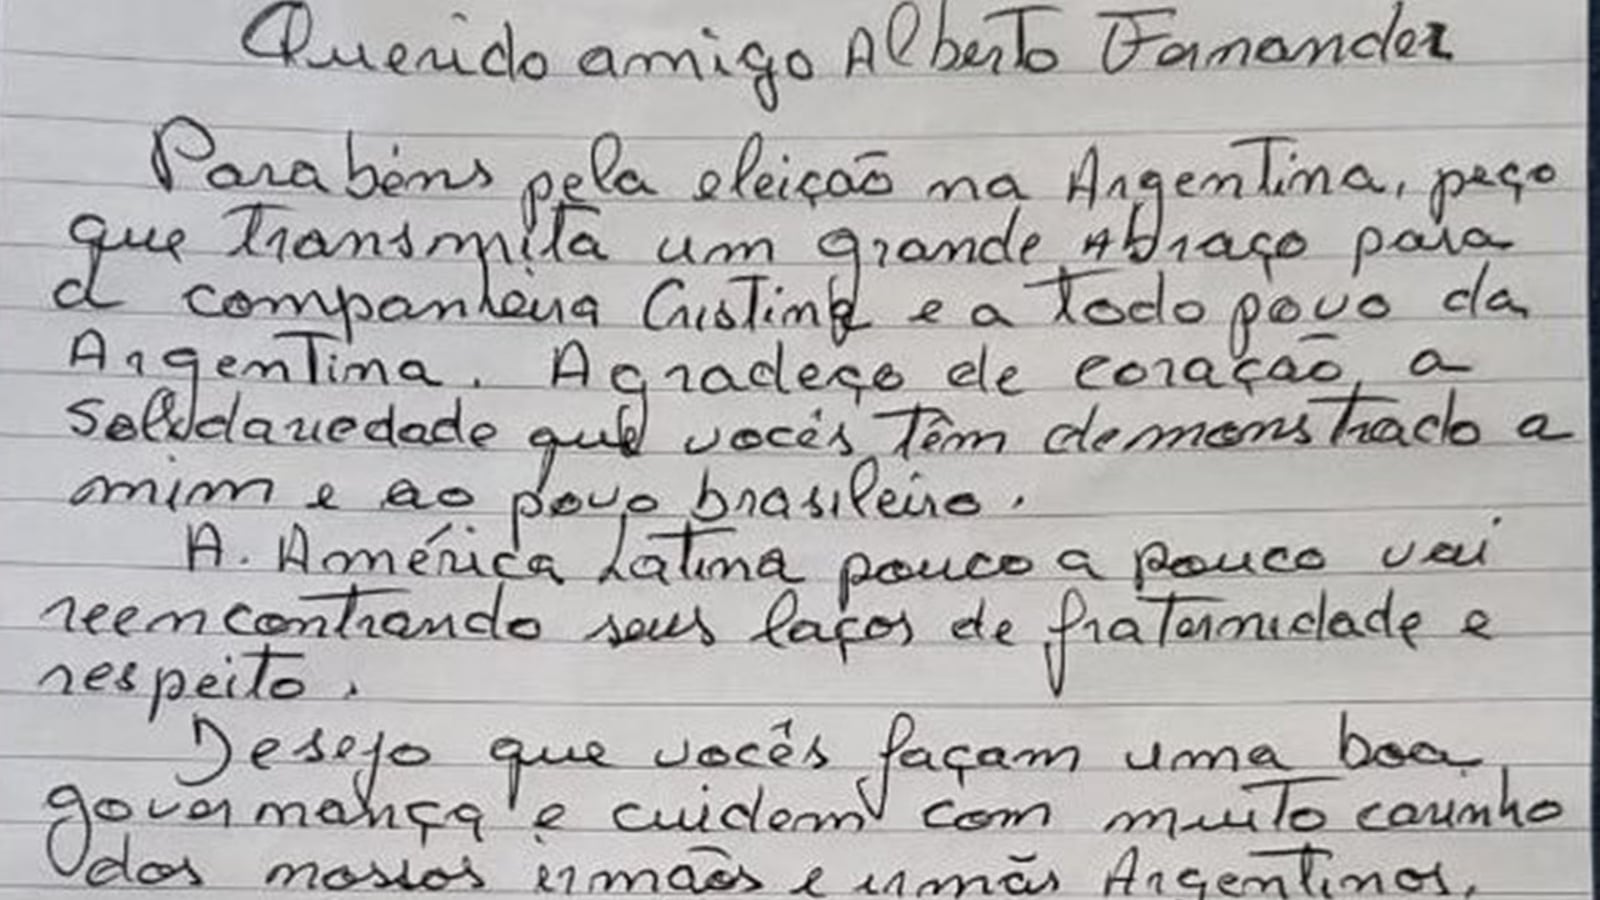 Querido amigo Alberto Fernandez
Parabéns pela eleição na Argentina, peço
que transmita um grande Abraço para
a companheira Cristina e a todo povo da
Argentina. Agradeço de coração, a
solidariedade que vocês têm demonstrado a
mim e ao povo brasileiro.
A. América Latina pouco a pouco vai
reencontrando seus laços de fraternidade e
respeito.
Desejo que vocês façam uma boa
governança e cuidem com muito carinho
dos nossos irmãos e irmãs Argentinos,